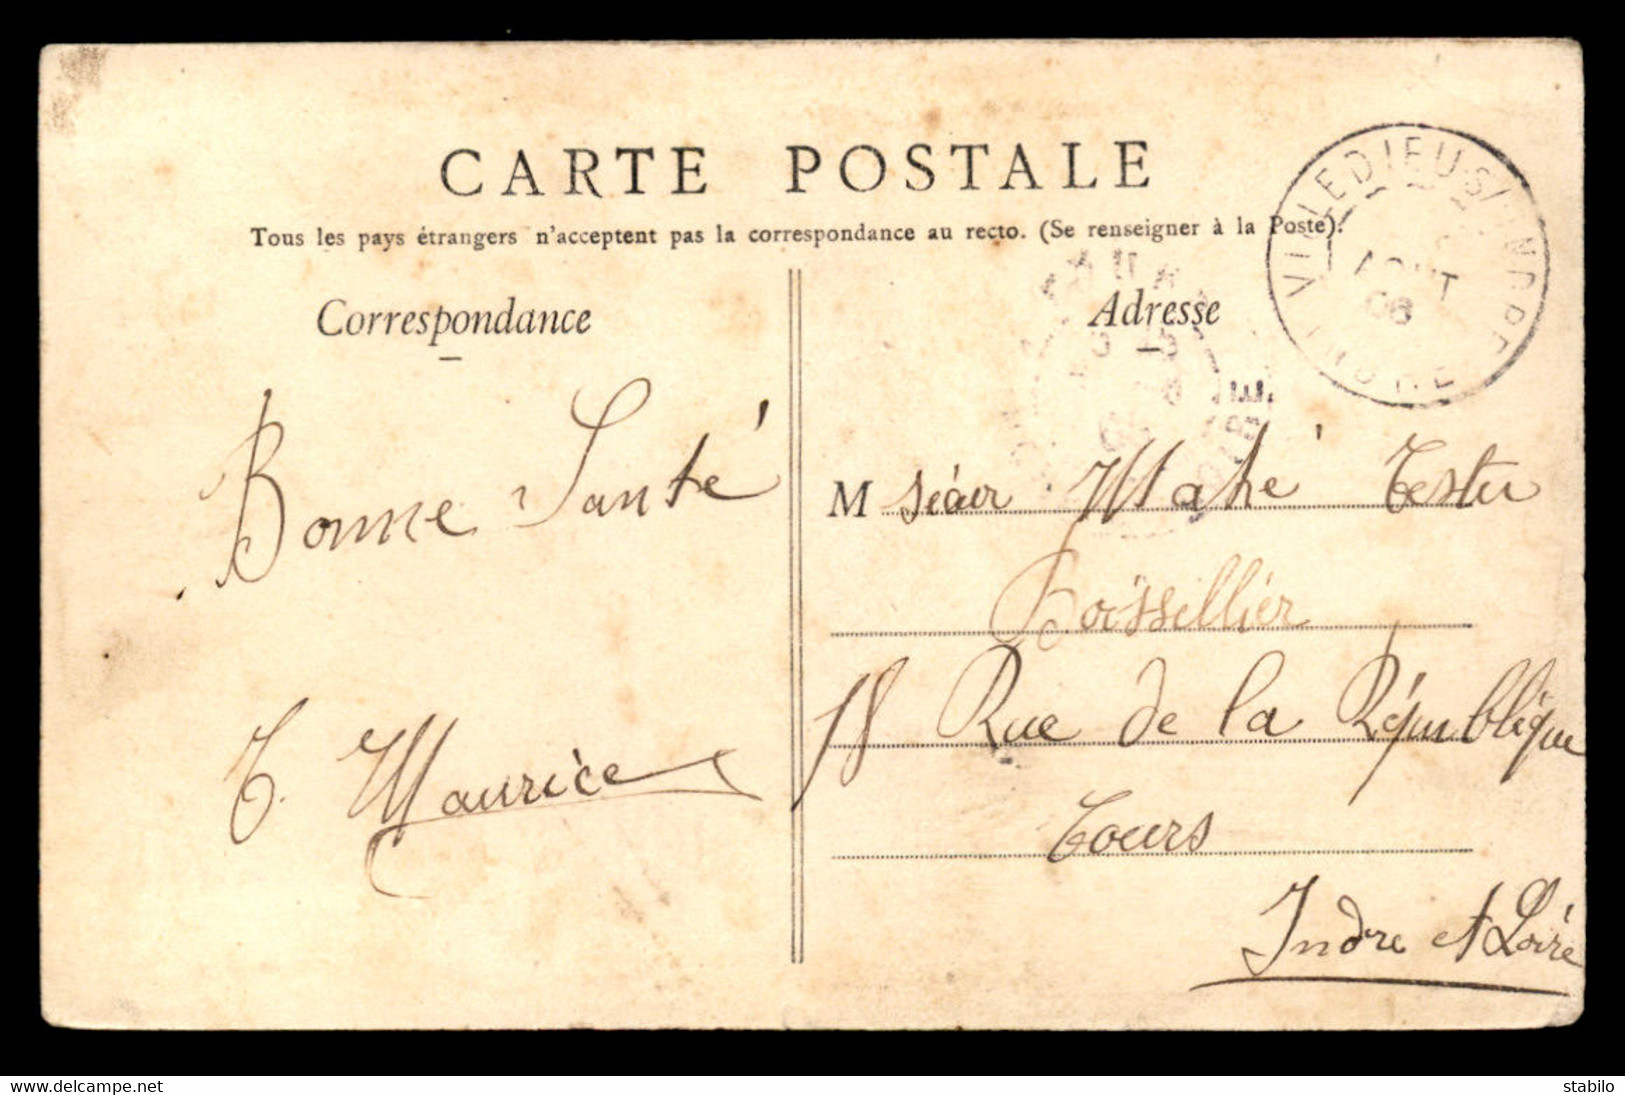 CARTE POSTALE
Tous les pays étrangers n'acceptent pas la correspondance au recto. (Se renseigner à la Poste).
Correspondance
Adresse
VILLEDIEU S/ INDRE
AOUT
06
INDRE
Bonne Santé
T. Maurice
M sieur Mahé Testu
Boissellier
18 Rue de la République
Tours
Indre et Loire
delcampe.net
stabilo